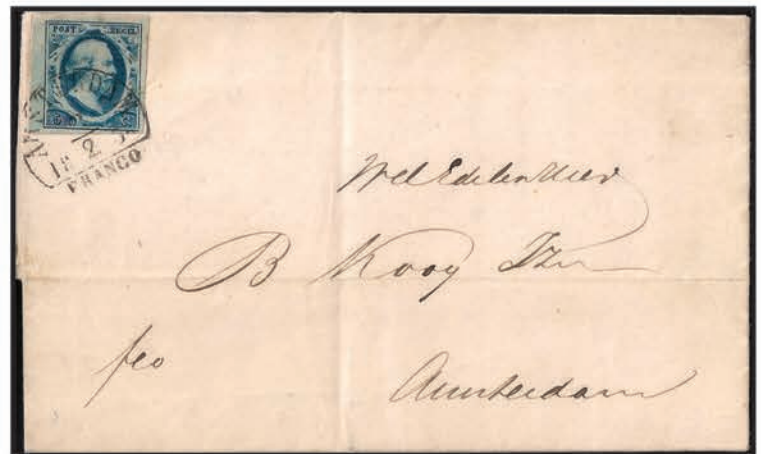 POST ZEGEL
FRANCO
WelEdelen Heer
B Kooy Jzn
fco
Amsterdam